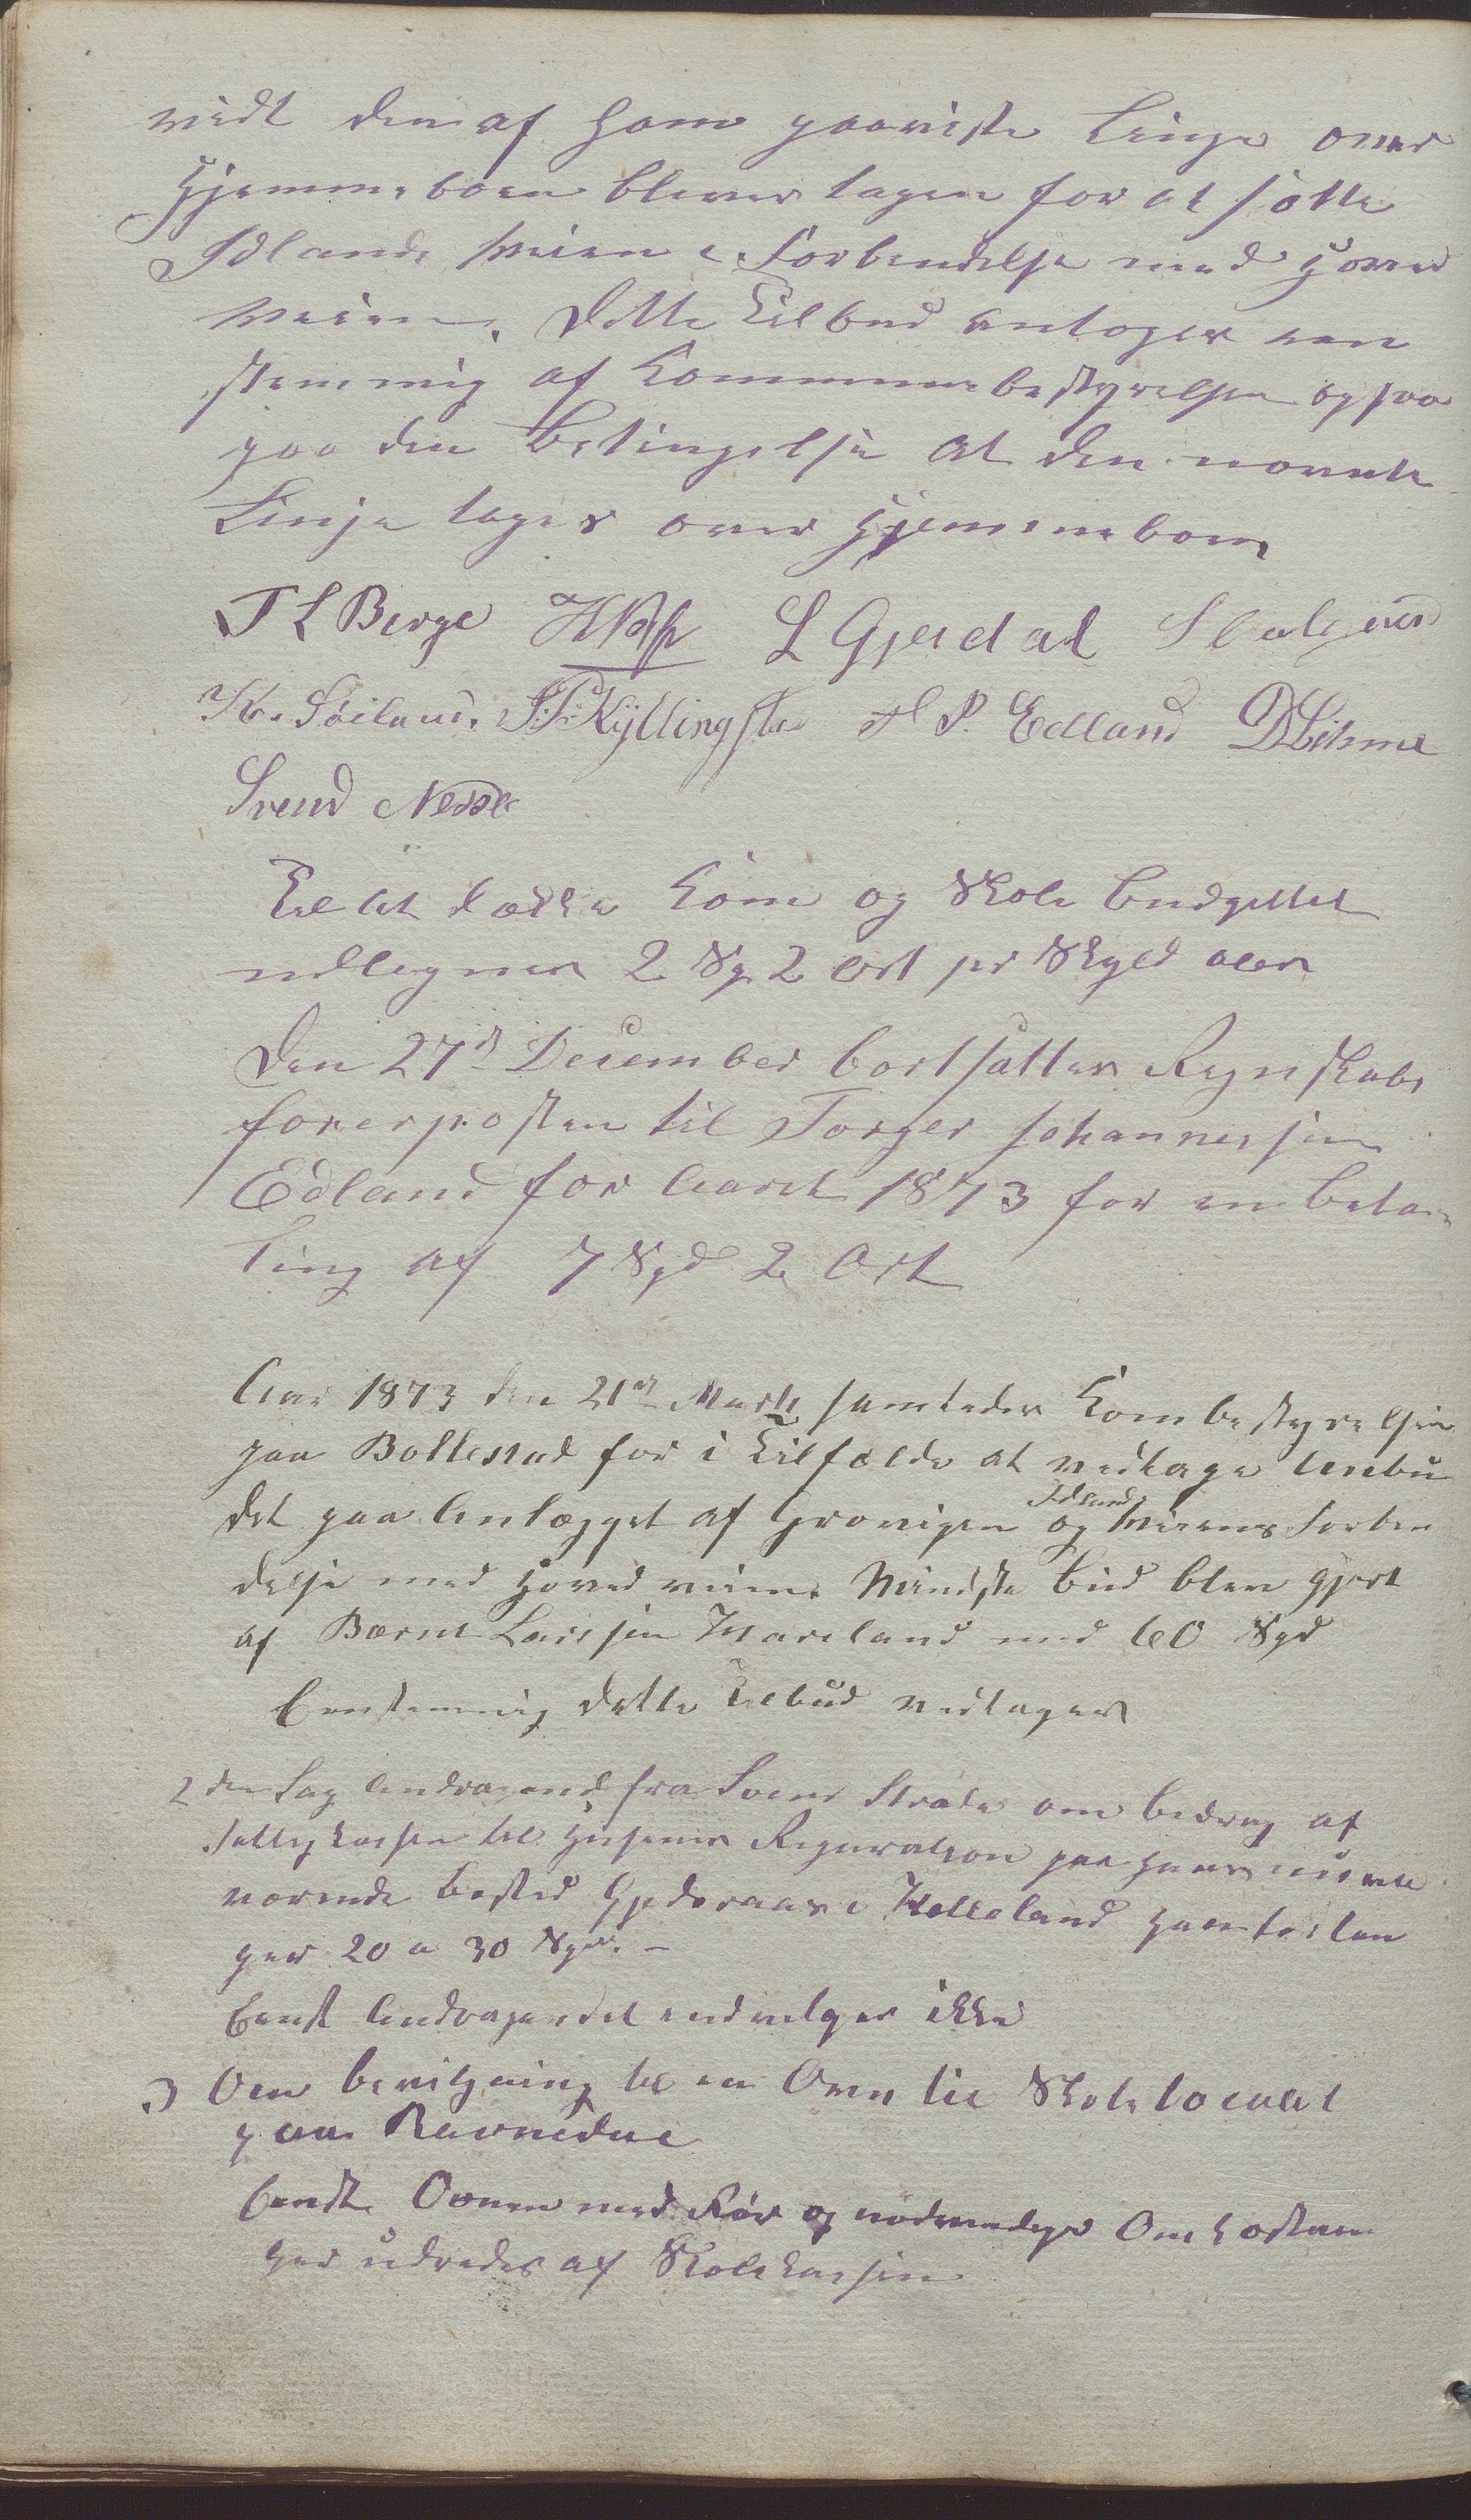 vidt den af ham paaviste Linje over
Hjemmeboen bliver tagen for at sætte
Idlands Veien i Forbindelse med Hoved
veien. Dette Tilbud antoges een
stemmig af Kommunebestyrelsen ogsaa
paa den Betingelse at den nævnte
Linje tages over Hjemmeboen
T L Berge L Gjesdal
Kr. Søiland. T. T. Kyllingsta H P. Edland D Lihme
Svend Nesse
Til at dække Kom og Skole Budgettet
udlignes 2 Sp 2 Ort pr Skyld aler
Den 27d December bortsattes Regnskabs
førerposten til Torger Johannessen
Edland for Aaret 1873 for en beta
ling af 7 Spd 2 Ort
Aar 1873 den 21de Marts samledes Kombestyrelsen
paa Bollestad for i Tilfælde at vedtage Anbu
det paa Anlægget af Grovigen og Idland Veiens Forbin
delse med Hovedveien. Mindste bud blev gjort
af Bærnt Larssen Mareland med 60 Spd
Eenstemmig dette Tilbud vedtages
2den Sag Andragend fra Svend Strode om bedrag af
Fattigkassen til Husenes Reparation paa Hans nuvæ
værende bosted Gjederaas i Helleland Han forlan
ger 20 a 30 Spd. -
Eenst Andragendet indvilges ikke
3 Om bevilgning til en Ovn til Skolelocalet
paa Ravnedal
Eenst. Ovnen med Rør og nødvendige Omkostnin
ger udredes af Skolekassen